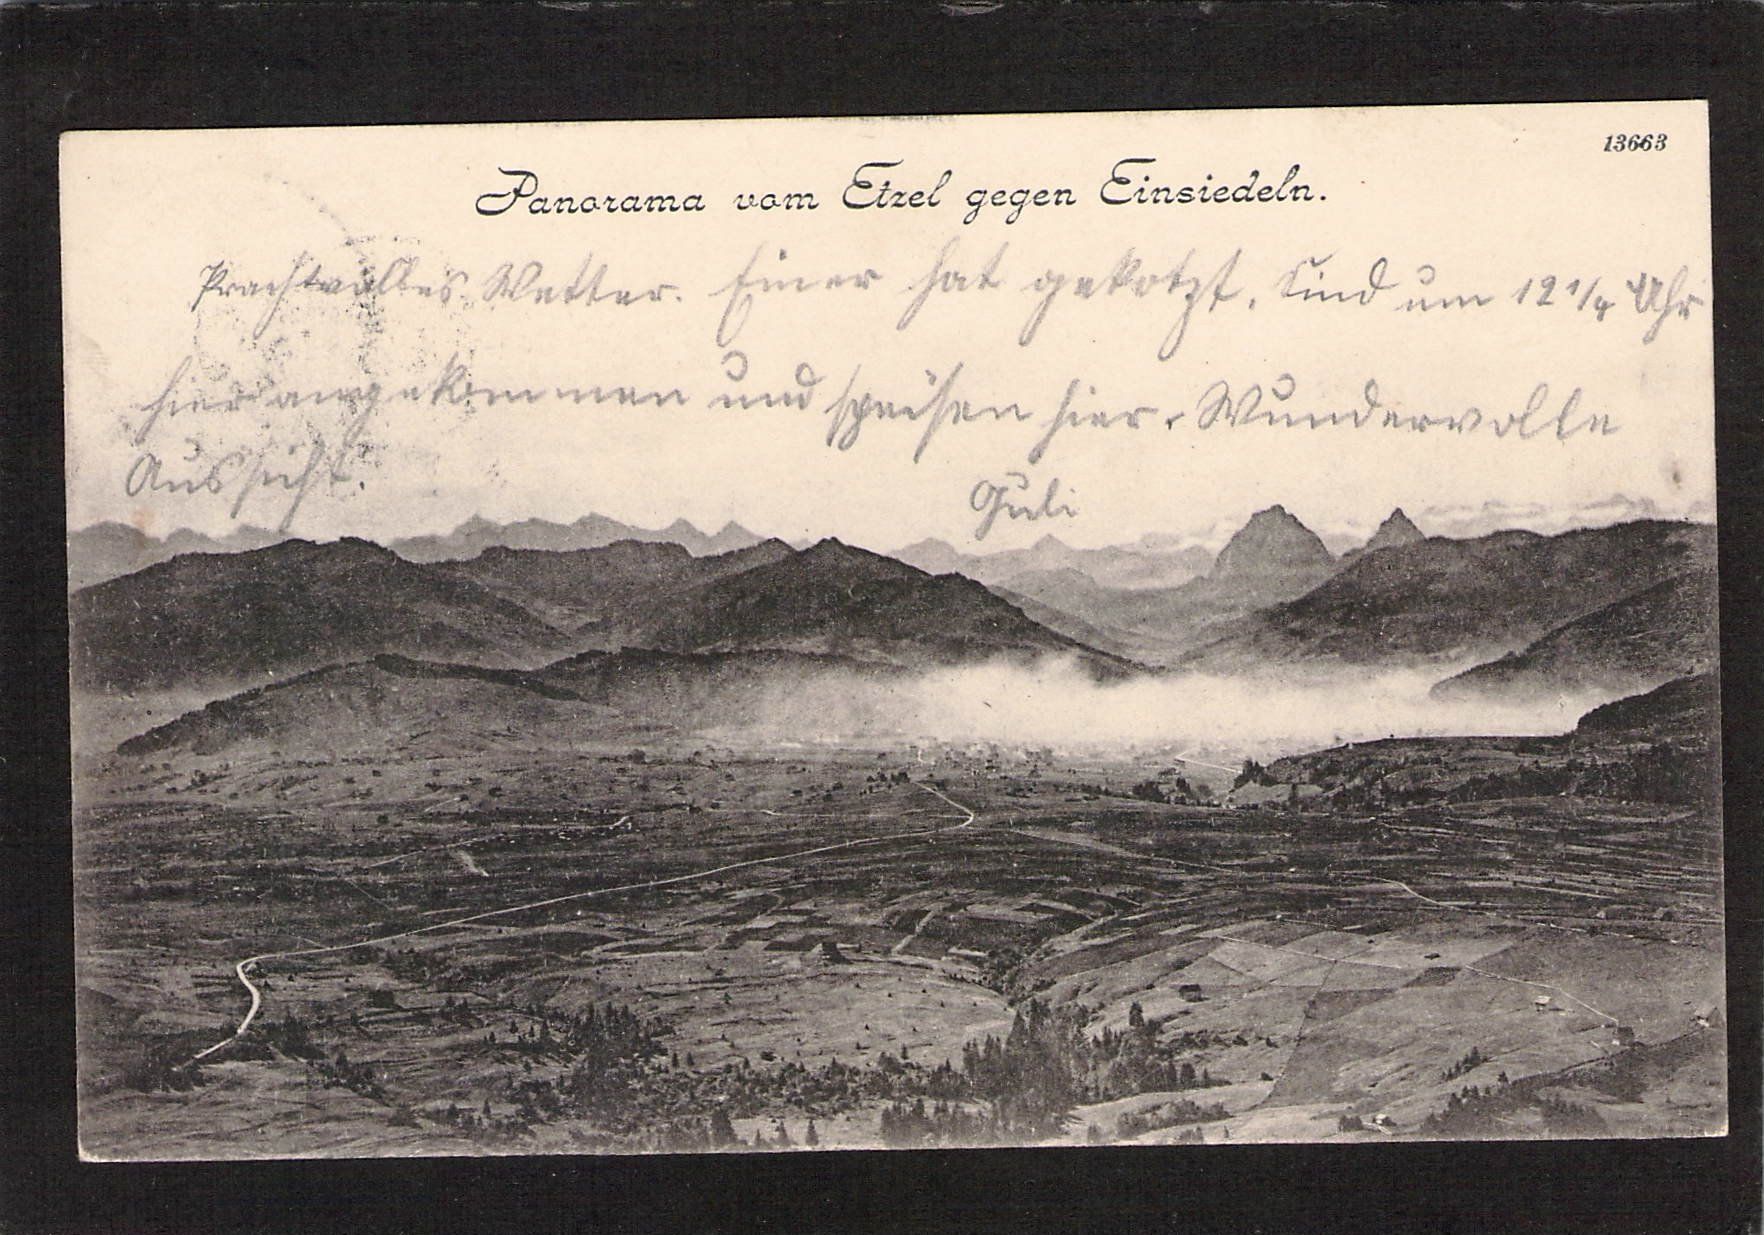 13663
Panorama vom Etzel gegen Einsiedeln.
Prachtvolles Wetter. Einer hat gekotzt. Sind um 12 1/4 Uhr
hier angekommen und speisen hier. Wundervolle
Aussicht.
Juli